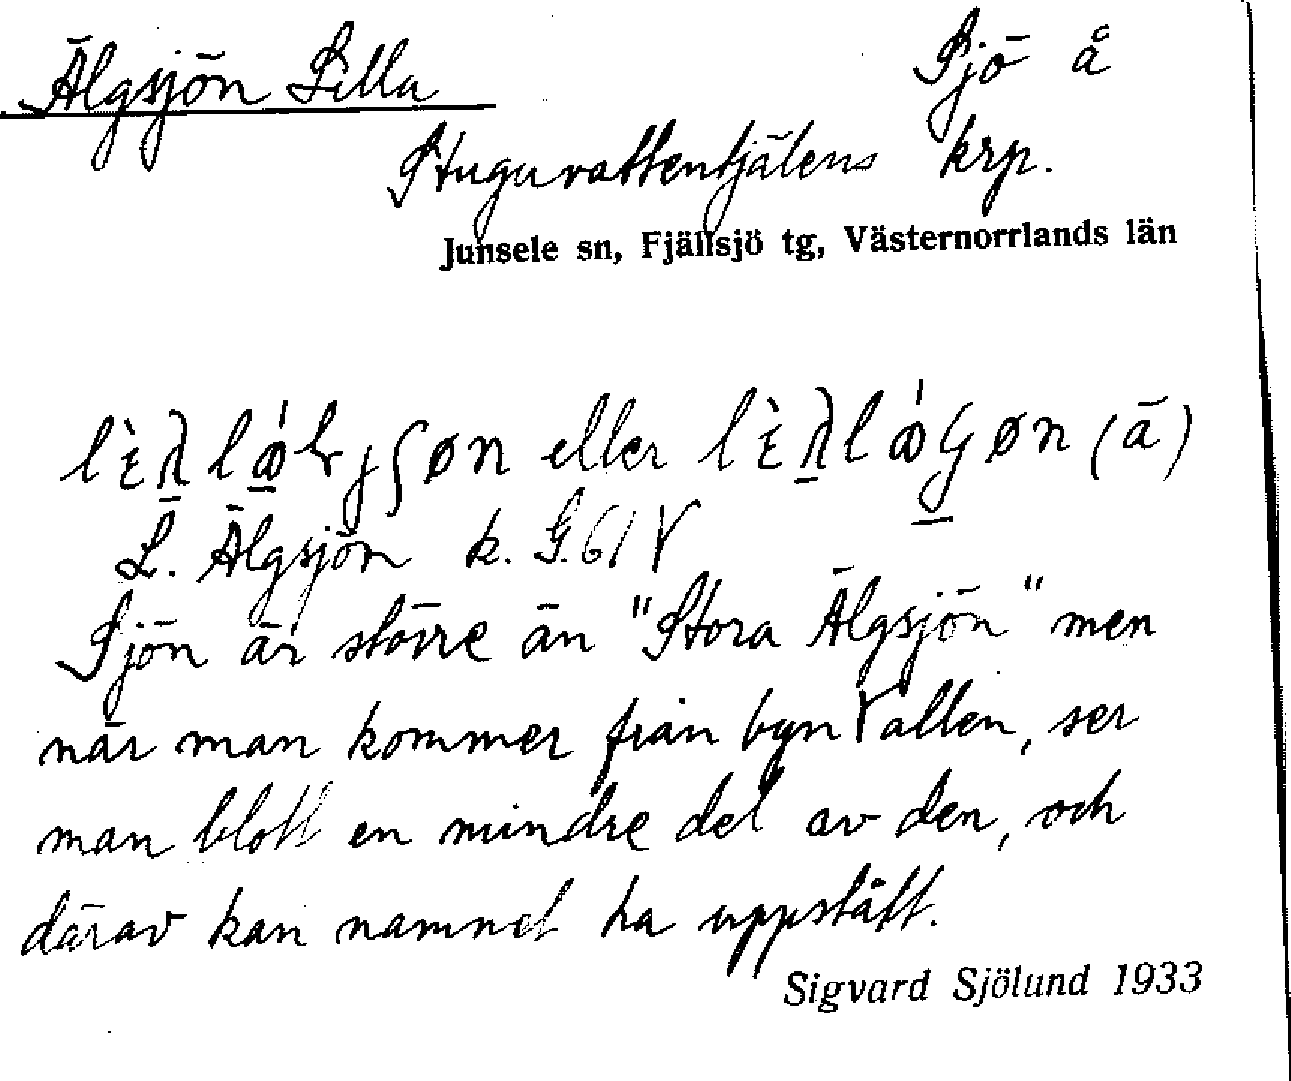 Älgsjön Lilla
Sjö å
Stuguvattentjälens krp.
Junsele sn, Fjällsjö tg, Västernorrlands län
eller (ā)
L. Älgsjön k. G.61 V
Sjön är större än "Stora Älgsjön" men
när man kommer från byn Vallen, ser
man blott en mindre del av den, och
därav kan namnet ha uppstått.
Sigvard Sjölund 1933